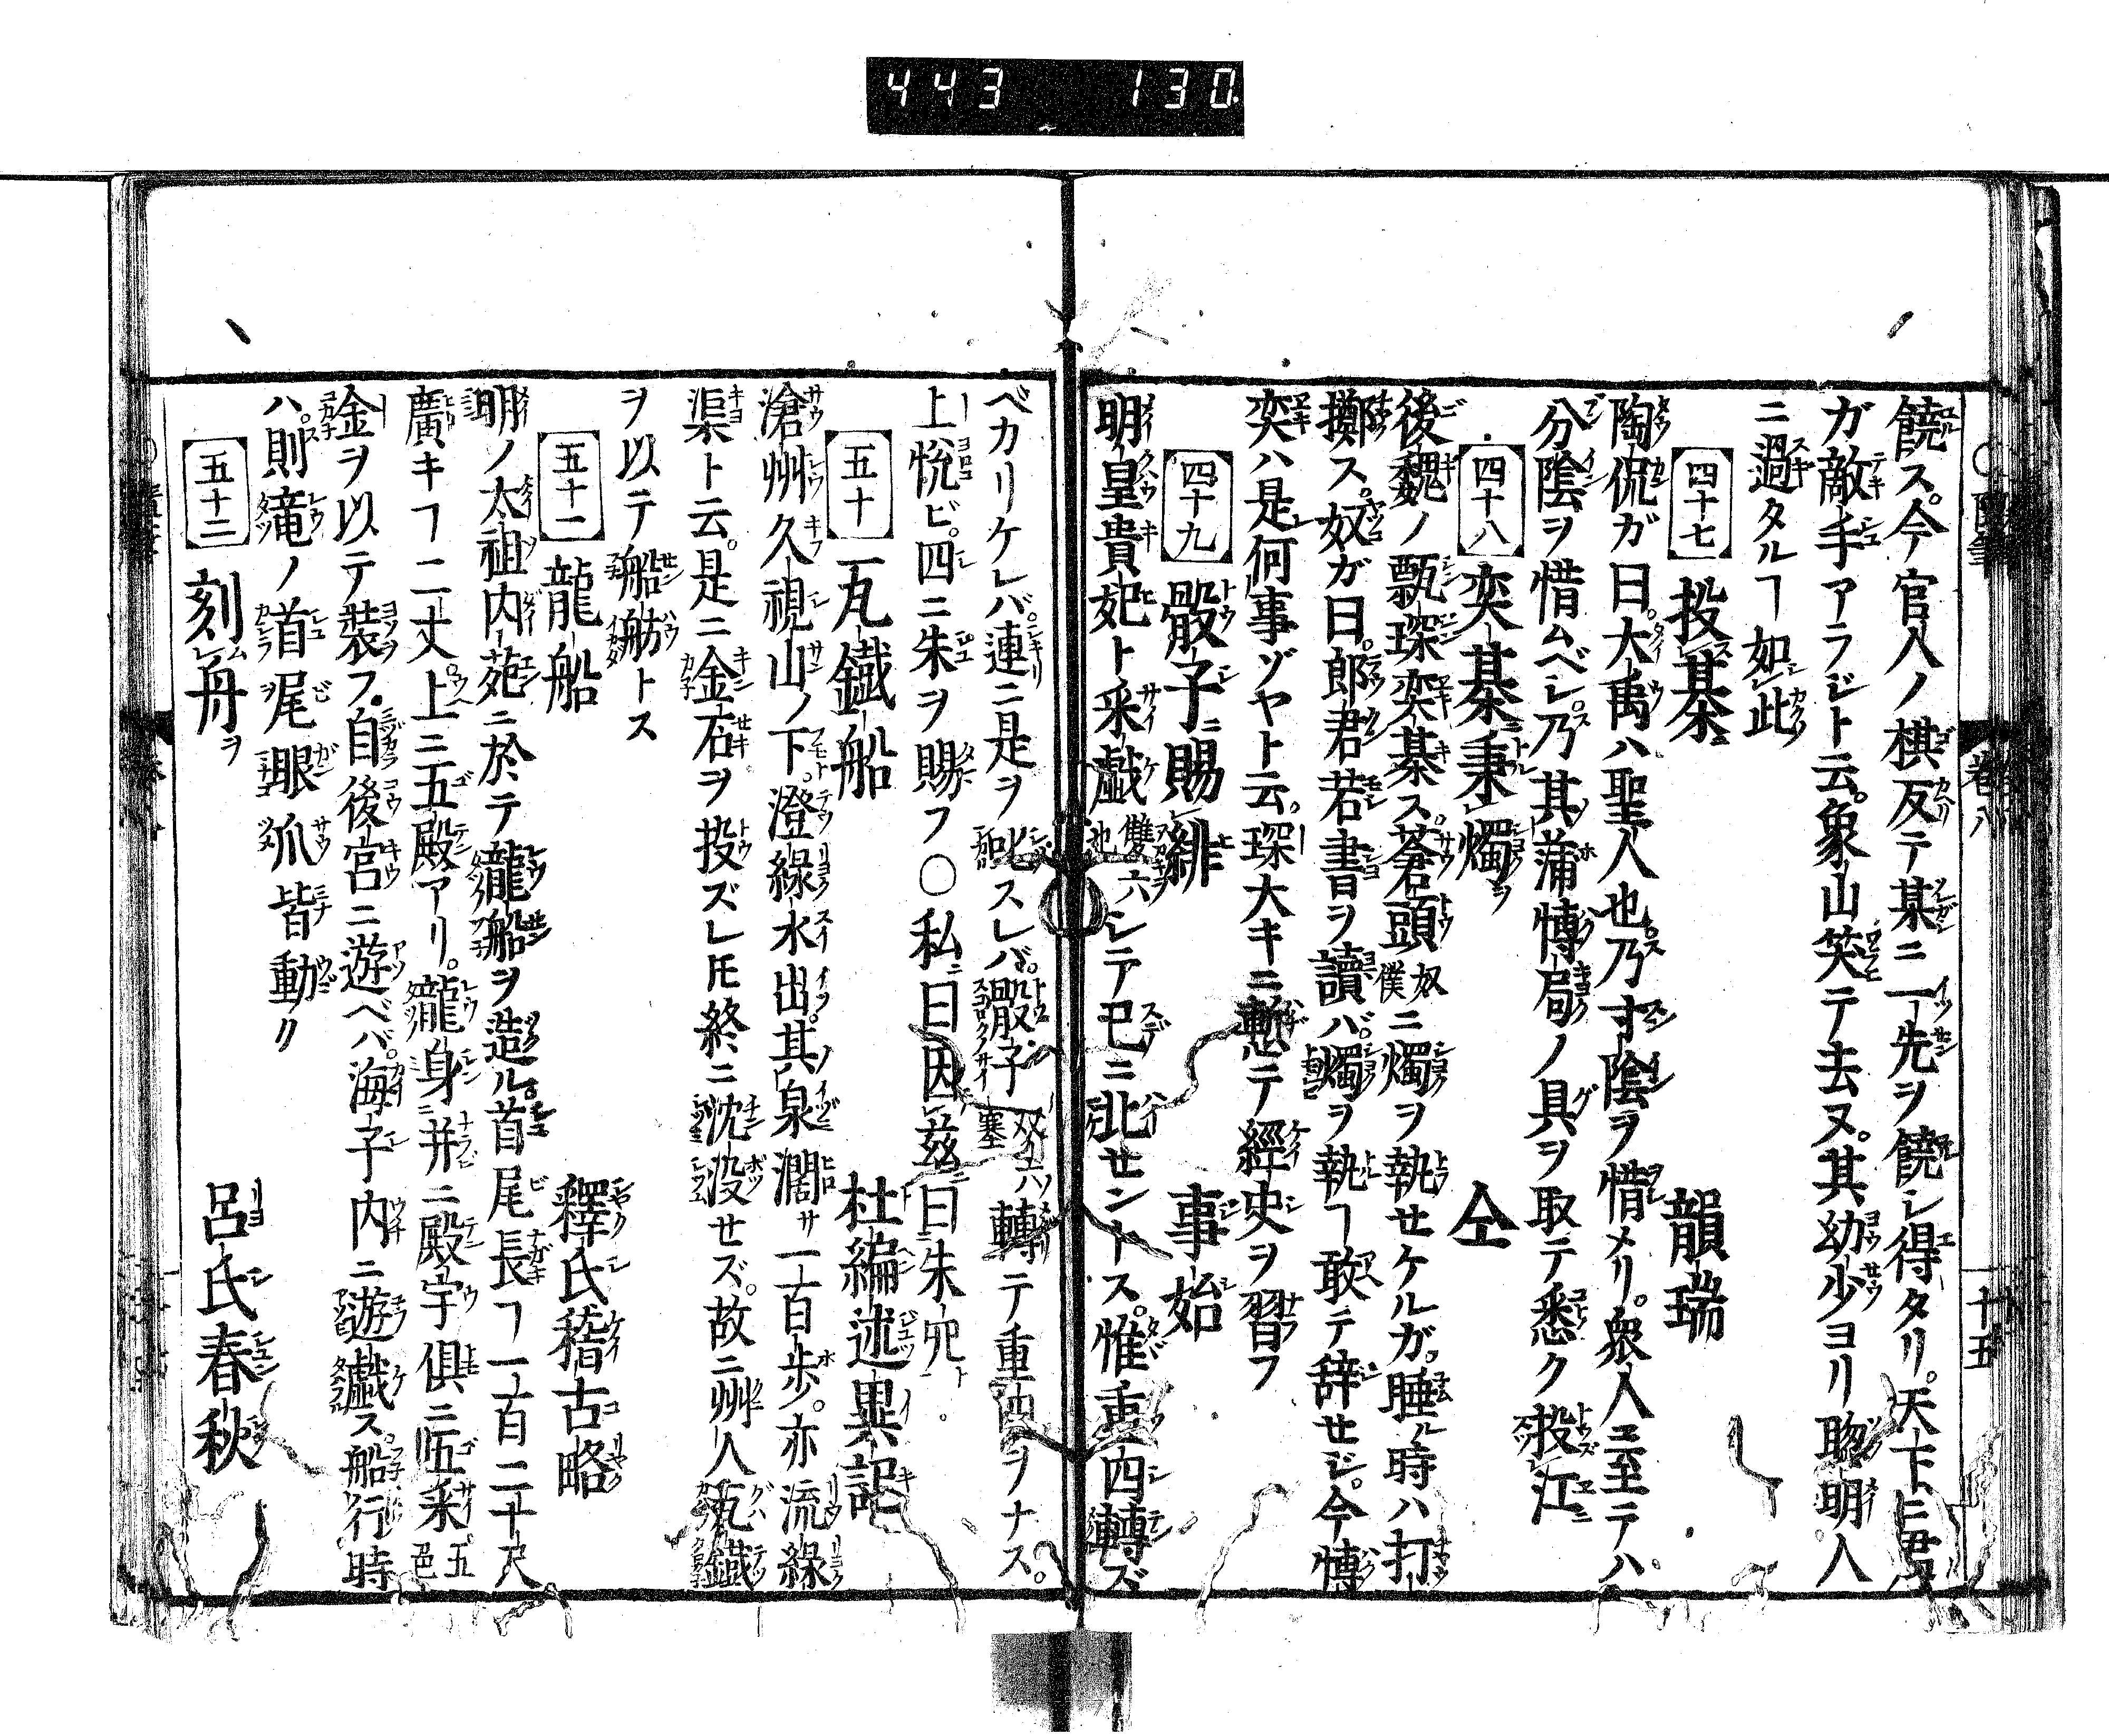 443 130
饒ス。今官人ノ棋反テ某ニ一先ヲ饒シ得タリ。天下ニ君
ガ敵手アラジト云。象山笑テ去ヌ。其幼少ヨリ聡明人
ニ過タルヿ如此
四十七 投棊 韻瑞
陶侃ガ曰。大禹ハ聖人也。乃寸陰ヲ惜メリ。衆人ニ至テハ。
分陰ヲ惜ムベシ。乃其蒲博局ノ具ヲ取テ悉ク投江
四十八 奕棊秉燭ヲ 仝
後魏ノ甄琛奕棊ス。蒼頭奴僕ニ燭ヲ執セケルガ。睡ル時ハ打
擲ス。奴ガ曰。郎君若書ヲ讀バ。燭ヲ執ヿ敢テ辞セジ。今博
奕ハ是何事ゾヤト云。琛大キニ慙テ經史ヲ習フ
四十九 骰子賜緋 事始
明皇貴妃ト采戯雙六也シテ已ニ北セントス。惟重四轉ズ
ベカリケレバ連ニ是ヲ叱スレバ。骰子双六ノ塞轉テ重四ヲナス。
上悦ビ。四ニ朱ヲ賜フ〇私曰因茲曰朱四ト。
五十 一瓦鐵船 杜編述異記
滄州久視山ノ下。澄綠水出。其泉濶サ一百歩。亦流綠
渠ト云。是ニ金石ヲ投ズレ𪜈終ニ沈没セズ。故ニ州人瓦鐵
ヲ以テ船舫トス
五十一 龍船 釋氏稽古略
明ノ太祖内苑ニ於テ龍船ヲ造ル。首尾長ヿ一百二十尺
廣キヿ二丈上ニ五殿アリ。龍身并ニ殿宇俱ニ五采五色
金ヲ以テ装フ。自後宮ニ遊ベバ。海子内ニ遊戯ス船行時
ハ。則竜ノ首尾眼爪皆動ク
五十二 刻舟ヲ 呂氏春秋
卷八
十五